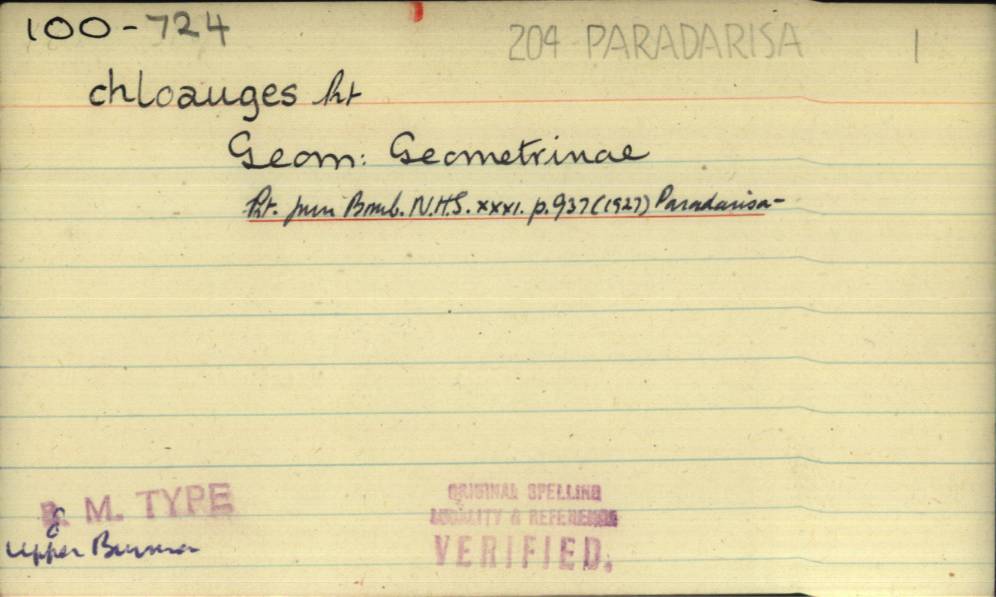 100-724
204 PARADARISA 1
chloauges Prt
Geom: Geometrinae
Prt. Journ Bomb. N.H.S. xxxi. p.937 (1927) Paradarisa-
B. M. TYPE
♂
Upper Burma
ORIGINAL SPELLING
LOCALITY & REFERENCE
VERIFIED.